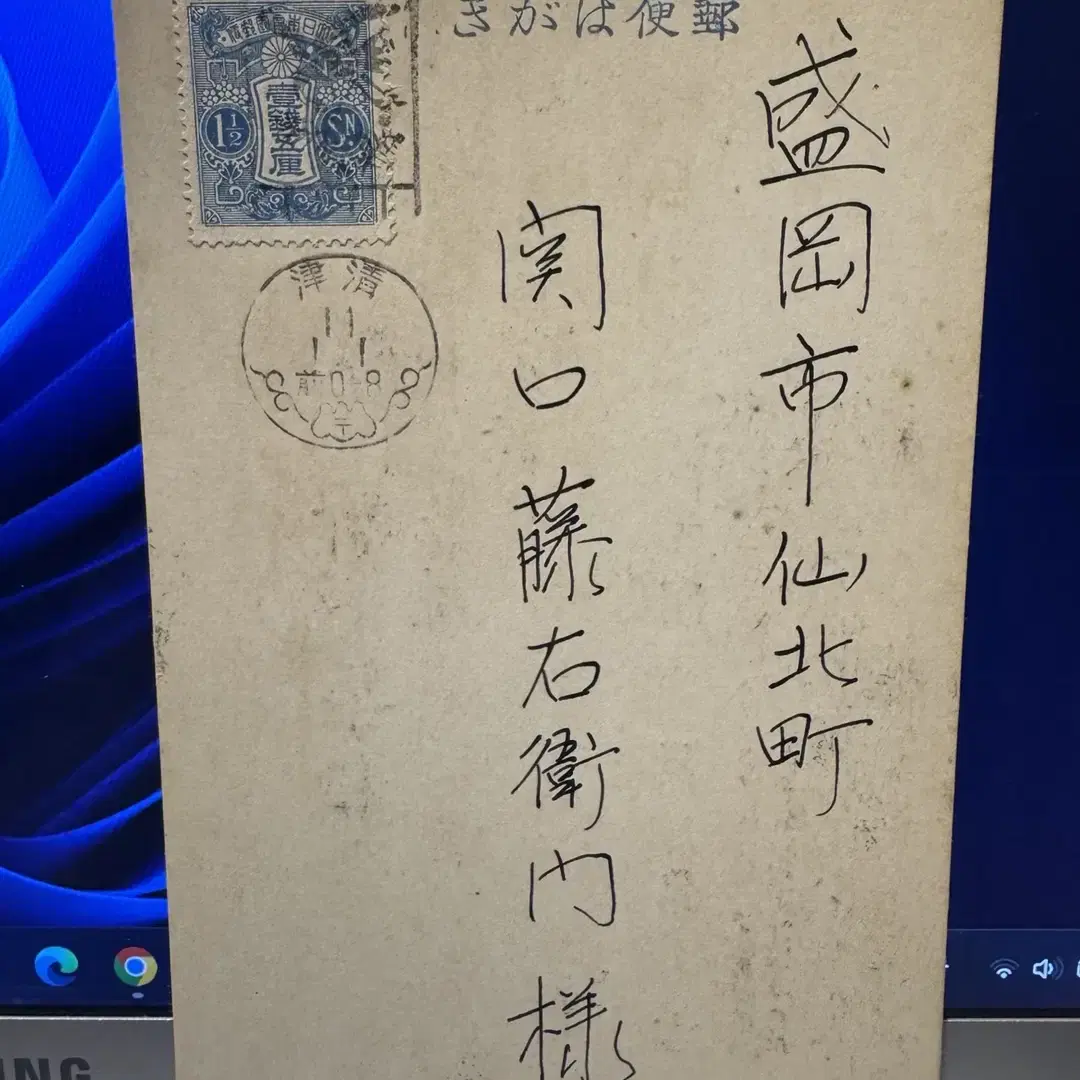 きがは便郵
盛岡市仙北町
関口藤右衛門様
壹錢五厘
1½
Sn
津清
11
1 1
前0-8